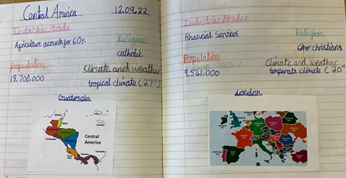 Central America 12.09.22
Industries/trade
Agriculture accounts for 60s
Religion
catholic
Population
18,700,000
Climate and weather
tropical climate (27°)
Guatemala
Central
America
Industries/trade
Financial Services
Religion
other christians
Population
9,541,000
Climate and weather
temperate climate (20°
London